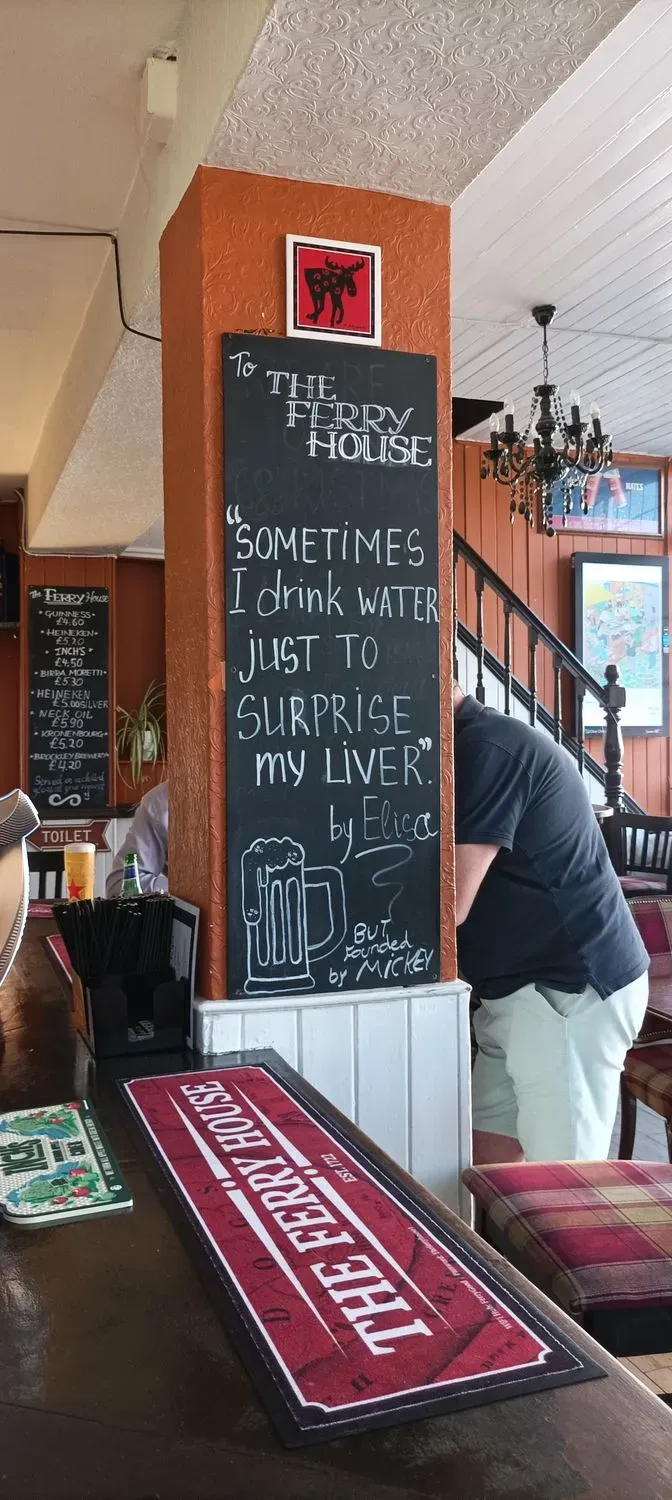 To THE
FERRY
HOUSE
"SOMETIMES
I drink WATER
just TO
SURPRISE
my LIVER".
by Elisa
BUT
Founded
by MICKEY
The FERRY House
• GUINNESS •
£4.60
• HEINEKEN •
£5.20
• INCH'S •
£4.50
• BIRRA MORETTI •
£5.30
• HEINEKEN
£5.00 SILVER
NECK OIL
£5.90
• KRONENBOURG •
£5.20
• BROCKLEY BREWERY •
£4.20
TOILET
HATES
THE FERRY HOUSE
EST. 1722